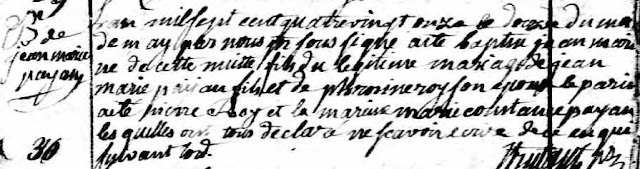 B de
jean marie
payan
lan mil sept cent quatre vingt onze le douze du mois
de may par nous pr soussigné a ete baptisé jean marie
né de cette nuitte fils du legitime mariage de jean
marie payan fils et de pheronne roy son epouse le parin
a ete pierre roy et la marine marie constance payan
lesquelles ont tous declaré ne scavoir ecrire de ce enquis
suivant lord.
36